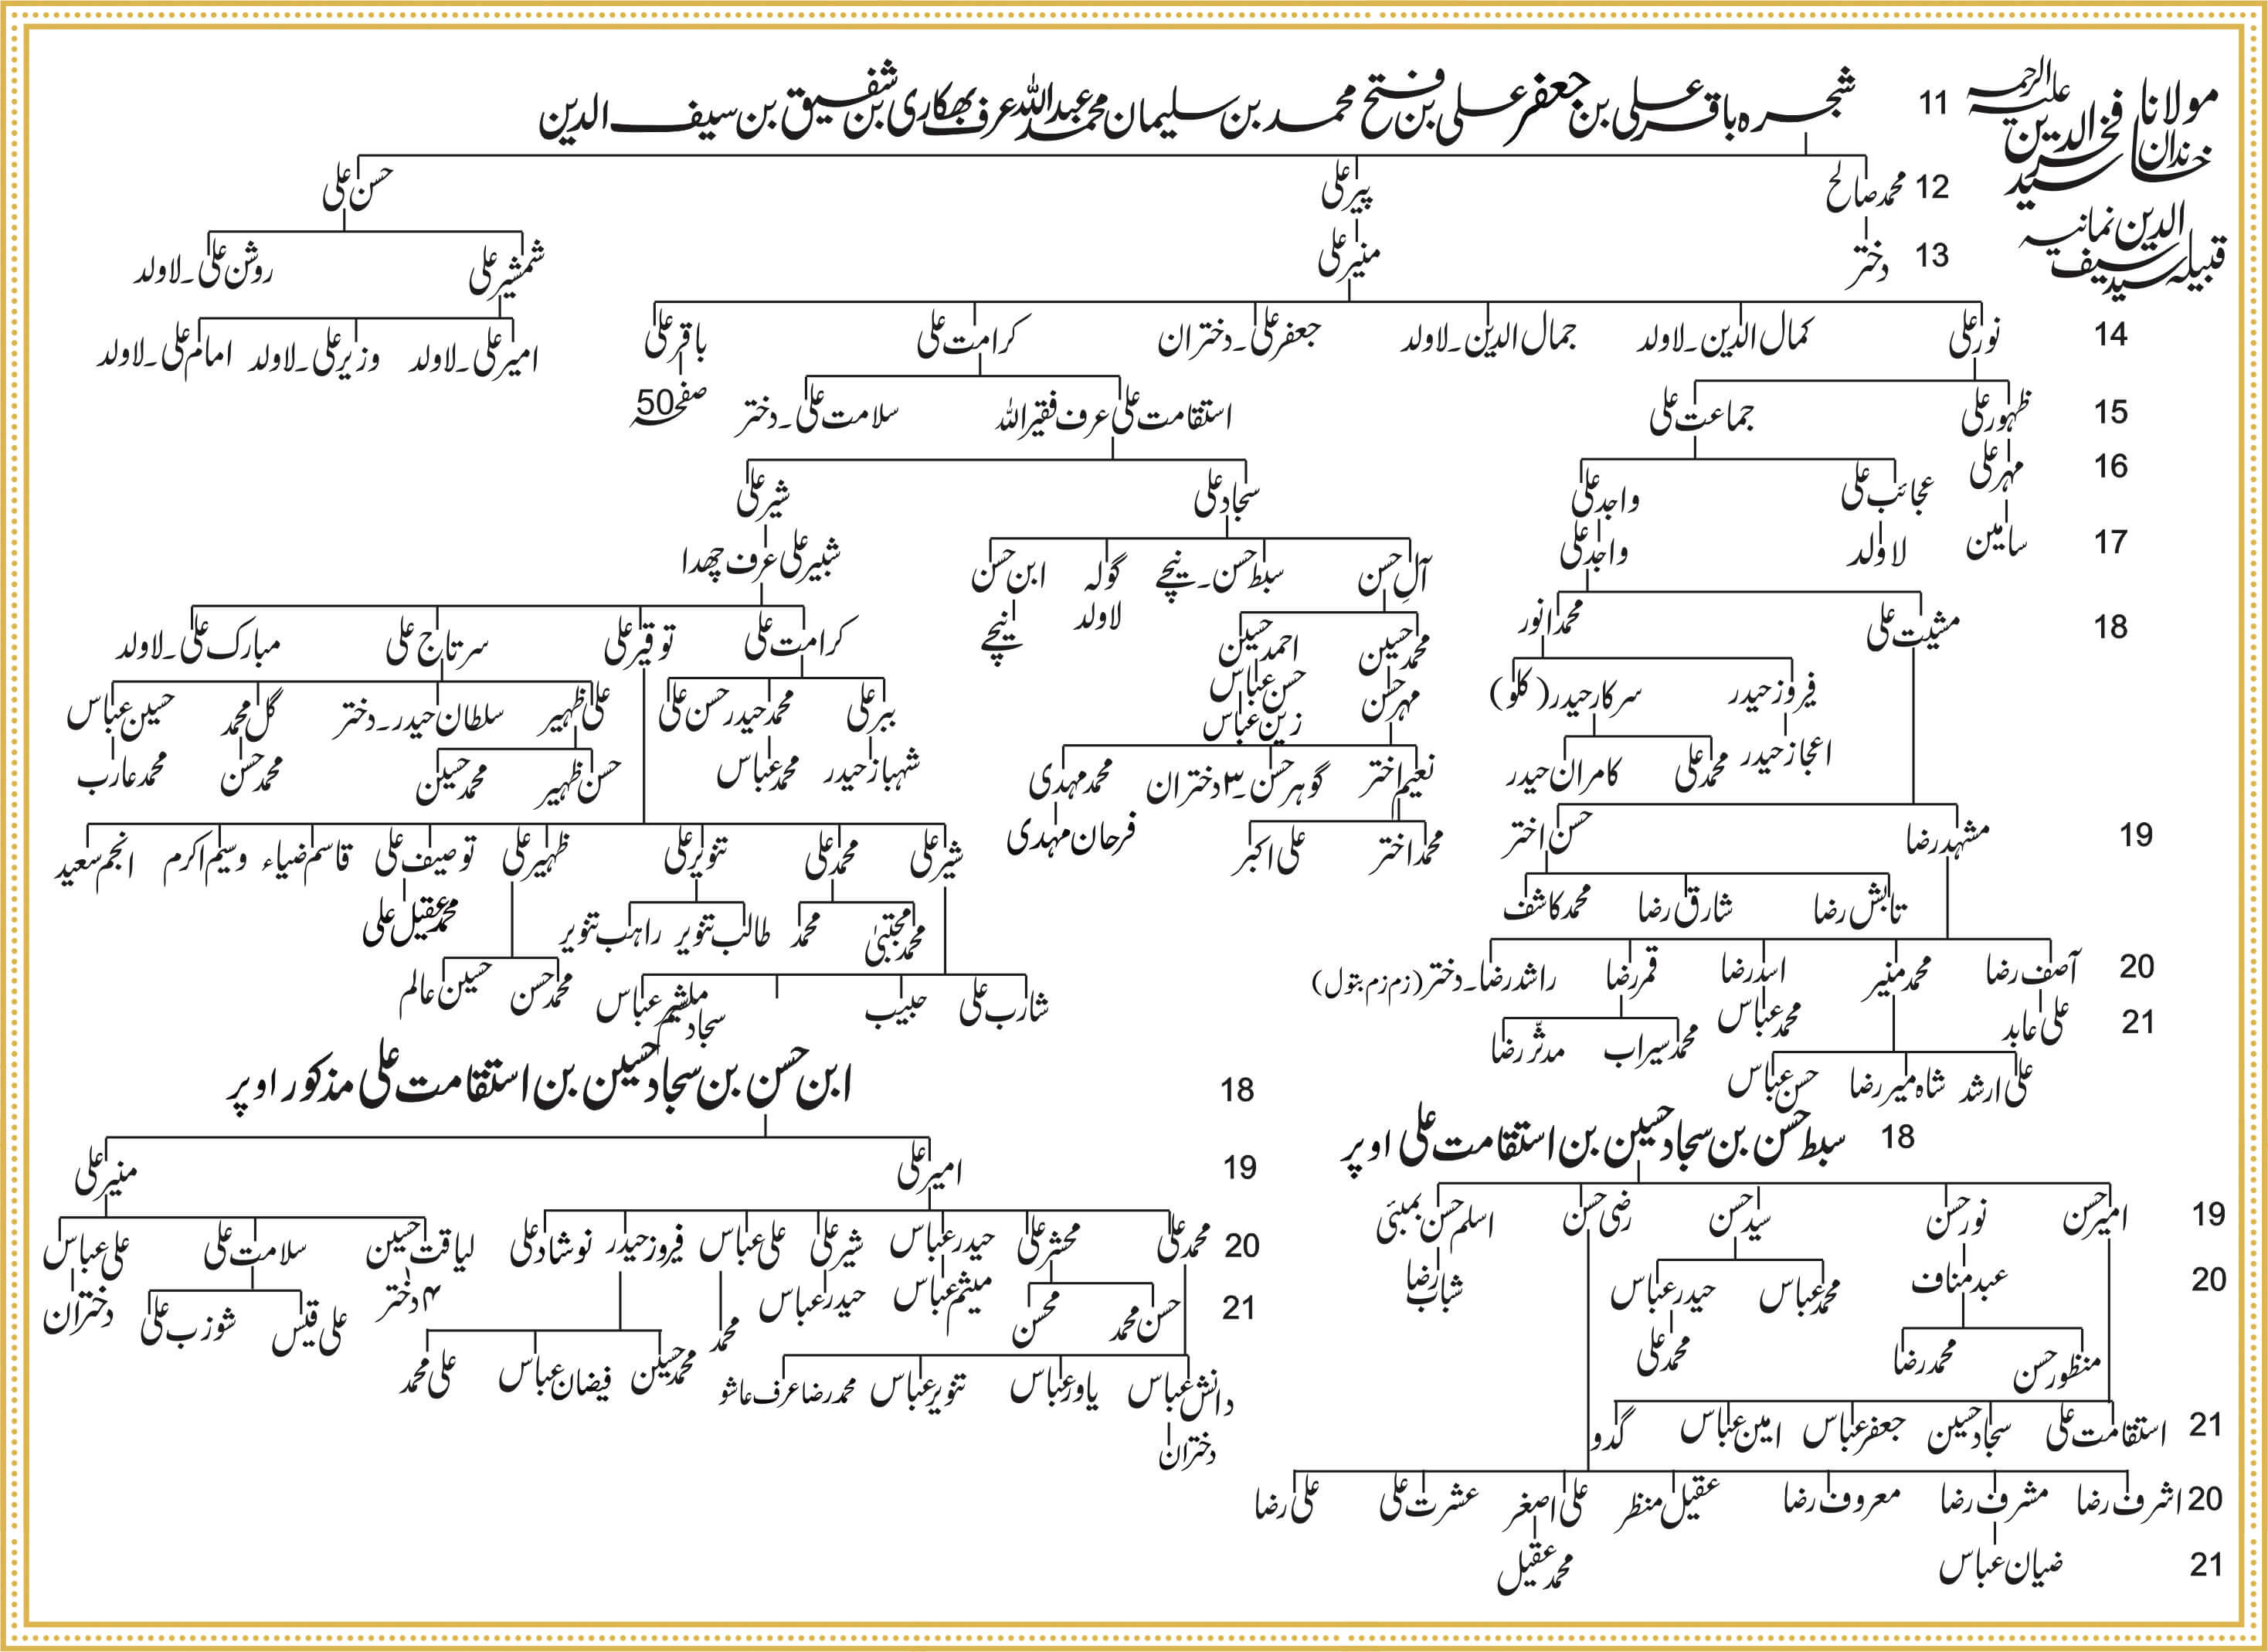 مولانا فخر الدین علیہ الرحمہ
خاندان سید
قبیلہ سید سیف الدین نمانیہ
11 شجرہ باقر علی بن جعفر علی بن فتح محمد بن سلیمان محمد عبداللہ عرف بھکاری بن شفیق بن سیف الدین
12 محمد صالح پیر علی حسن علی
13 دختر منیر علی شمشیر علی روشن علی۔لاولد
14 نور علی کمال الدین۔لاولد جمال الدین۔لاولد جعفر علی۔دختران کرامت علی باقر علی امیر علی۔لاولد وزیر علی۔لاولد امام علی۔لاولد
صفحہ 50
15 ظہور علی جماعت علی استقامت علی عرف فقیر اللہ سلامت علی۔دختر
16 مہر علی عجائب علی واجد علی سجاد علی شیر علی
17 سامین لاولد واجد علی آلِ حسن سبط حسن۔نیچے گولہ ابن حسن شبیر علی عرف چھدا
لاولد نیچے
18 مشیت علی محمد انور محمد حسین احمد حسین کرامت علی توقیر علی سرتاج علی مبارک علی۔لاولد
فیروز حیدر سرکار حیدر (کلو) مہر حسن حسن عباس ببر علی محمد حیدر حسن علی علی ظہیر سلطان حیدر۔دختر گل محمد حسین عباس
زین عباس
اعجاز حیدر محمد علی کامران حیدر نعیم اختر گوہر حسن۔۳ دختران محمد مہدی شہباز حیدر محمد عباس حسن ظہیر محمد حسین محمد حسن محمد عارب
19 مشہد رضا حسن اختر محمد اختر علی اکبر فرحان مہدی شبر علی محمد علی تنویر علی ظہیر علی توصیف علی قاسم ضیاء وسیم اکرم انجم سعید
تابش رضا شارق رضا محمد کاشف محمد مجتبیٰ محمد طالب تنویر راہب تنویر محمد عقیل علی
20 آصف رضا محمد منیر اسد رضا قمر رضا راشد رضا۔دختر (زم زم بتول) شارب علی حبیب سجاد میثم عباس محمد حسن حسین عالم
21 علی عابد محمد عباس محمد سیراب مدثّر رضا
علی ارشد شاہ میر رضا حسن عباس
18 ابن حسن بن سجاد حسین بن استقامت علی مذکور اوپر
19 امیر علی منیر علی
20 محمد علی محشر علی حیدر عباس شبر علی علی عباس فیروز حیدر نوشاد علی لیاقت حسین سلامت علی علی عباس
21 حسن محمد محسن میثم عباس حیدر عباس محمد ۴ دختر علی قیس شوزب علی دختران
محمد حسین فیضان عباس علی محمد
دانش عباس یاور عباس تنویر عباس محمد رضا عرف عاشو
دختران
18 سبط حسن بن سجاد حسین بن استقامت علی اوپر
19 امیر حسن نور حسن سید حسن رضی حسن اسلم حسن بمبئی
20 عبد مناف محمد عباس حیدر عباس شباب رضا
منظور حسن محمد رضا محمد علی
21 استقامت علی سجاد حسین جعفر عباس امین عباس گدو
20 اشرف رضا مشرف رضا معروف رضا عقیل منظر علی اصغر عشرت علی علی رضا
21 ضیان عباس محمد عقیل